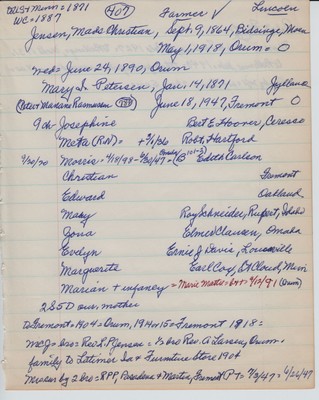 TRIST Minn = 1871 (407) Farmer ✓ Lincoln
WC = 1887
Jensen, Mads Christian, Sept. 9, 1864, Bidsinge,
May 1, 1918, Orum = O
med = June 24, 1890, Orum
Mary S. Petersen, Jan. 14, 1871 Jylland
(Peter Mariane Rasmussen) June 18, 1947, Fremont O
9 ch Josephine Bert E Hoover, Ceresco
Meta (RN) = + 3/1/36 Robt. Hartford
Morris = 4/18/98 - Edith Carlson
Christian Fremont
Edward Oakland
Mary Roy Schneider, Rupert, Idaho
Jona Elmer Clausen, Omaha
Evelyn Ernie J Davis, Louisville
Marguerite Earl Cox, St Cloud, Minn
Marian + infancy = Marie Mattie = b+d = 4/12/91 (Orum)
2 S 5 D sur. mother
to Fremont = 1904 = Orum, 1914 or 15 = Fremont 1918 =
MCJ = bro = Rev. L P Jensen = ½ bro Rev. A Larsen, Orum =
family to Latimer Ia & Furniture Store 1904
Mrs sur by 2 bro = RPP, Pasadena & Martin, Fremont PT = 7/3/47 = 6/26/47